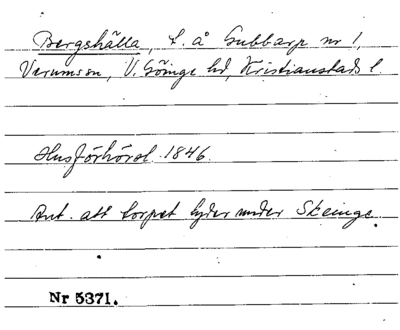 Bergshälla, t. å Gubbarp nr 1,
Verums sn, V. Göinge hd, Kristianstads l.
Husförhörsl. 1846.
Ant. att torpet lyder under Skeinge.
Nr 5371.